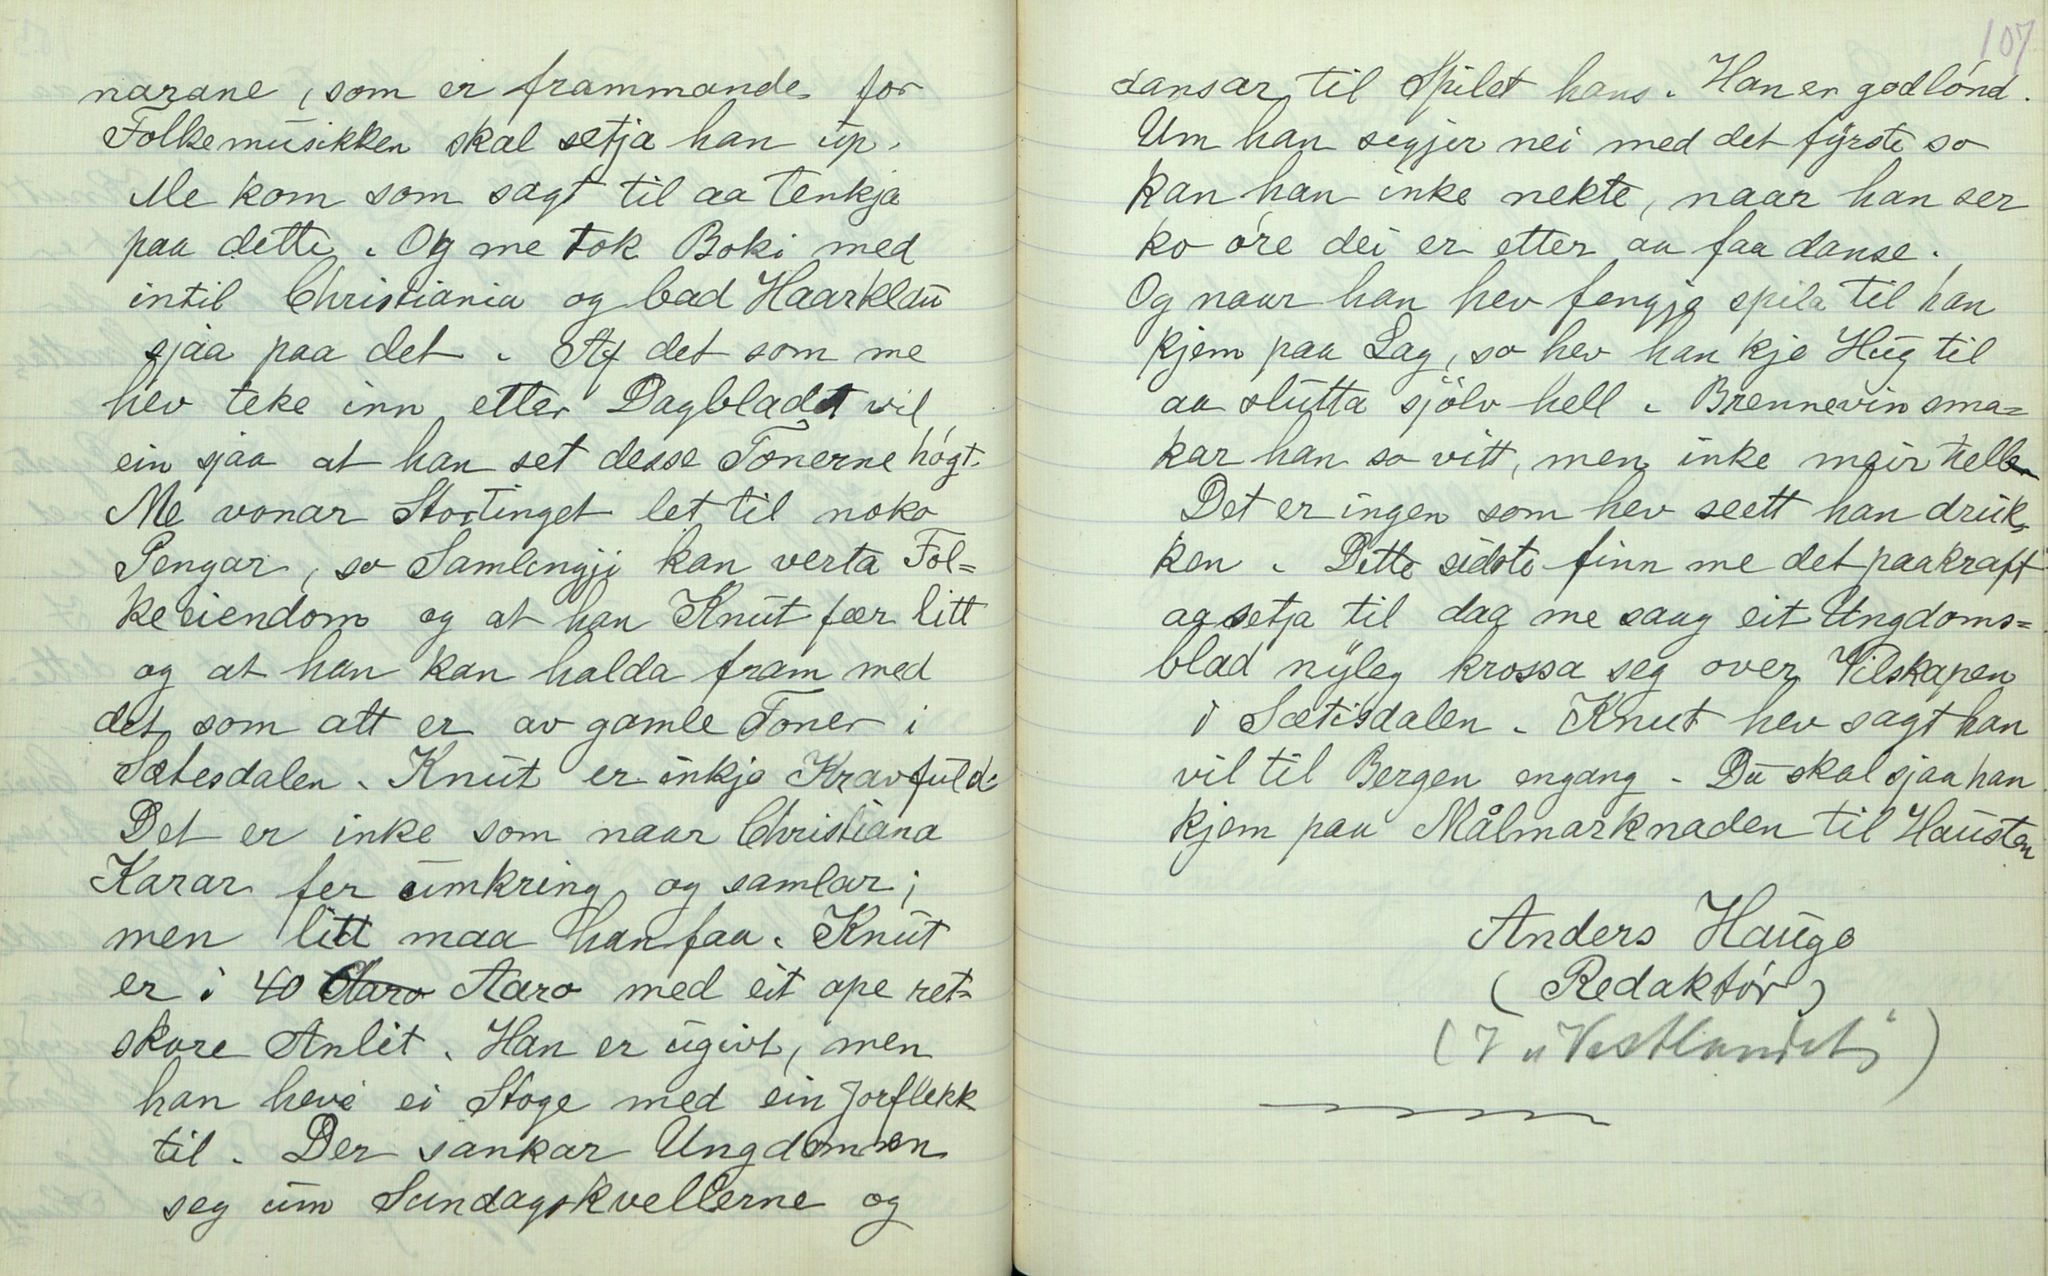 narane, som er frammande for
Folkemusikken skal setja han up.
Me kom som sagt til aa tenkja
paa dette. Og me tok Boki med
intil Christiania og bad Haarklou
sjaa paa det. Af det som me
hev teke inn etter Dagbladet vil
ein sjaa at han set desse Tonerne högt.
Me vonar Stortinget let til noko
Pengar, so Samlingji kan verta Fol=
keeiendom og at han Knut fær litt
og at han kan halda fram med
det som att er av gamle Toner i
Sætesdalen. Knut er inkje Kravfuld.
Det er inke som naar Christiana
Karar fer umkring og samlar;
men litt maa han faa. Knut
er i 40 Aaro Aaro med eit ope ret-
skore Anlit. Han er ugivt, men
han heve ei Stoge med ein Jorflekk
til. Der sankar Ungdommen
seg um Sundagskvellerne og
107
dansar til Spilet hans. Han er godlönd.
Um han segjer nei med det fyrste so
kan han inke nekte, naar han ser
ko óre dei er etter aa faa danse.
Og naar han hev fengje spila til han
kjem paa Lag, so hev han kje Hug til
aa slutta sjölv hell. Brennevin sma=
kar han so vitt, men inke meir heller
Det er ingen som hev seett han druk-
ken. Dette sidste finn me det paakraft
aa setja til daa me saag eit Ungdoms=
blad nyleg krossa seg over Vilskapen
i Sætisdalen. Knut hev sagt han
vil til Bergen engang. Du skal sjaa han
kjem paa Målmarknaden til Hausten
Anders Hauge
(Redaktör)
(I "Vestlandet")